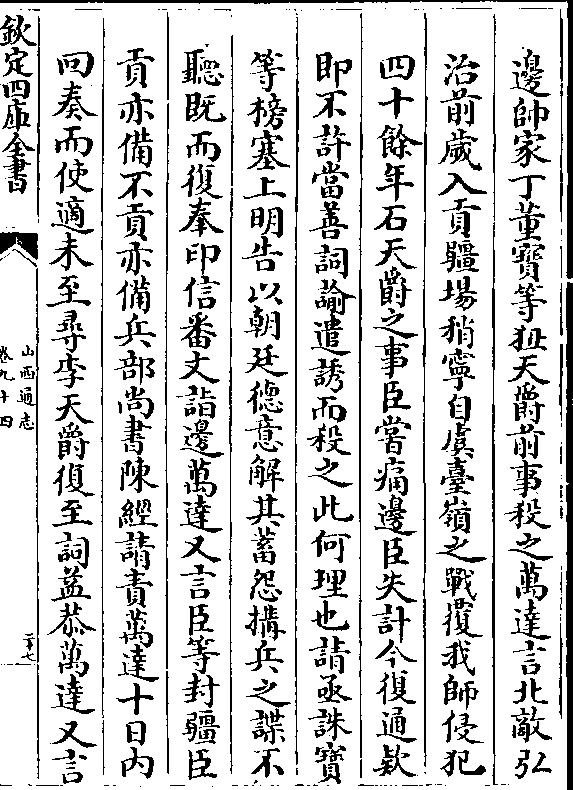 邊帥家丁董寶等狃天爵前事殺之萬達言北敵弘
治前歲入貢疆場稍寧自虞臺嶺之戰覆我師侵犯
四十餘年石天爵之事臣嘗痛邊臣失計今復通欵
即不許當善詞諭遣誘而殺之此何理也請亟誅寶
等榜塞上明告以朝廷德意解其蓄怨搆兵之謀不
聽既而復奉印信番文詣邊萬達又言臣等封疆臣
貢亦備不貢亦備兵部尚書陳經請責萬達十日内
回奏而使適未至尋李天爵復至詞益恭萬達又言
欽定四庫全書
山西通志
卷九十四
二十七